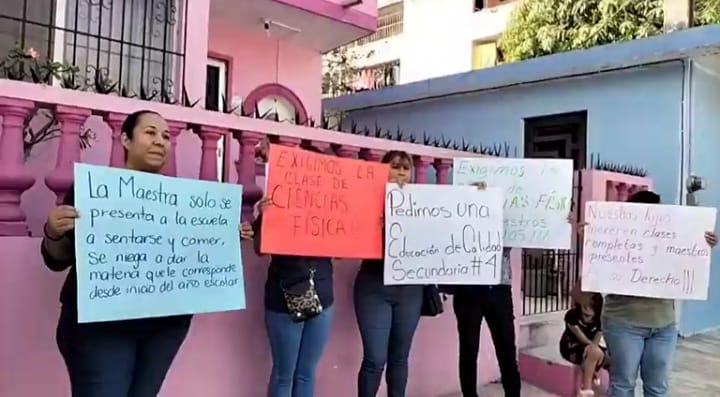 La Maestra solo se
presenta a la escuela
a sentarse y comer.
Se niega a dar la
materia que le corresponde
desde inicio del año escolar
EXIGIMOS LA
CLASE DE
CIENCIAS
FÍSICA!!
Pedimos una
Educación de Calidad
Secundaria #4
Exigimos la
de
FÍSI
Nuestros hijos
merecen clases
completas y maestros
presentes
Es su Derecho!!!